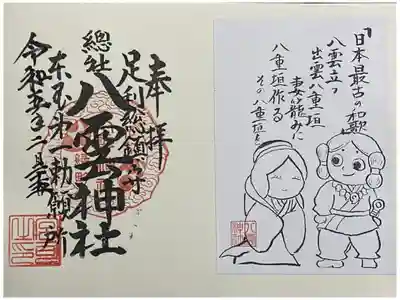 奉拝
足利総鎮守
總社
八雲神社
東国第一勅願所
令和五年二月
「日本最古の和歌
八雲立つ
出雲八重垣
妻籠みに
八重垣作る
その八重垣を